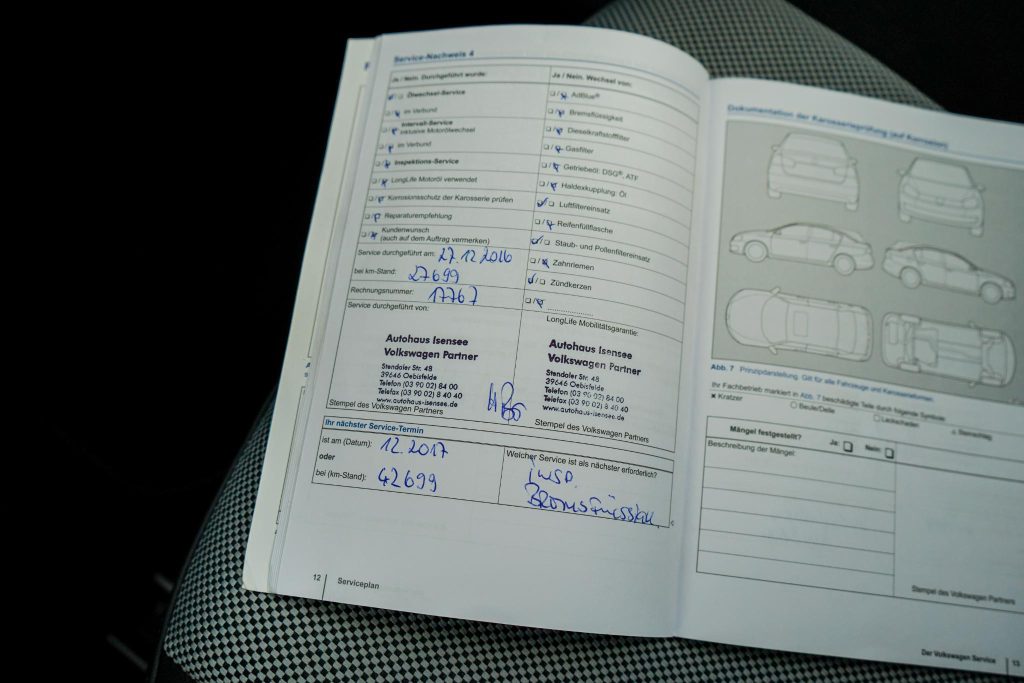 Service-Nachweis 4
Ja / Nein. Durchgeführt wurde:
Ölwechsel-Service
im Verbund
Intervall-Service
inklusive Motorölwechsel
im Verbund
Inspektions-Service
LongLife Motoröl verwendet
Korrosionsschutz der Karosserie prüfen
Reparaturempfehlung
Kundenwunsch
(auch auf dem Auftrag vermerken)
Service durchgeführt am: 27.12.2016
bei km-Stand: 27699
Rechnungsnummer: 17767
Service durchgeführt von:
Autohaus Isensee
Volkswagen Partner
Stendaler Str. 48
39646 Oebisfelde
Telefon (03 90 02) 84 00
Telefax (03 90 02) 8 40 40
www.autohaus-isensee.de
Stempel des Volkswagen Partners
Ja / Nein. Wechsel von:
AdBlue®
Bremsflüssigkeit
Dieselkraftstofffilter
Gasfilter
Getriebeöl: DSG®, ATF
Haldexkupplung: Öl
Luftfiltereinsatz
Reifenfüllflasche
Staub- und Pollenfiltereinsatz
Zahnriemen
Zündkerzen
LongLife Mobilitätsgarantie:
Autohaus Isensee
Volkswagen Partner
Stendaler Str. 48
39646 Oebisfelde
Telefon (03 90 02) 84 00
Telefax (03 90 02) 8 40 40
www.autohaus-isensee.de
Stempel des Volkswagen Partners
Ihr nächster Service-Termin
ist am (Datum): 12.2017
oder
bei (km-Stand): 42699
Welcher Service ist als nächster erforderlich?
Insp.
12
Serviceplan
Dokumentation der Karosserieprüfung (auf Korrosion)
Abb. 7 Prinzipdarstellung. Gilt für alle Fahrzeuge und Karosserieformen.
Ihr Fachbetrieb markiert in Abb. 7 beschädigte Teile durch folgende Symbole
Kratzer
Beule/Delle
Lackschaden
Steinschlag
Mängel festgestellt? Ja: Nein:
Beschreibung der Mängel:
Stempel des Volkswagen Partners
Der Volkswagen Service
13